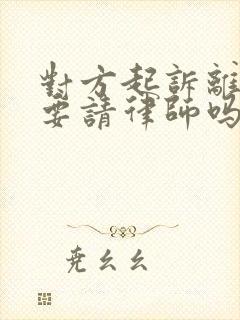 對方起訴離
要請律師嗎
堯幺幺